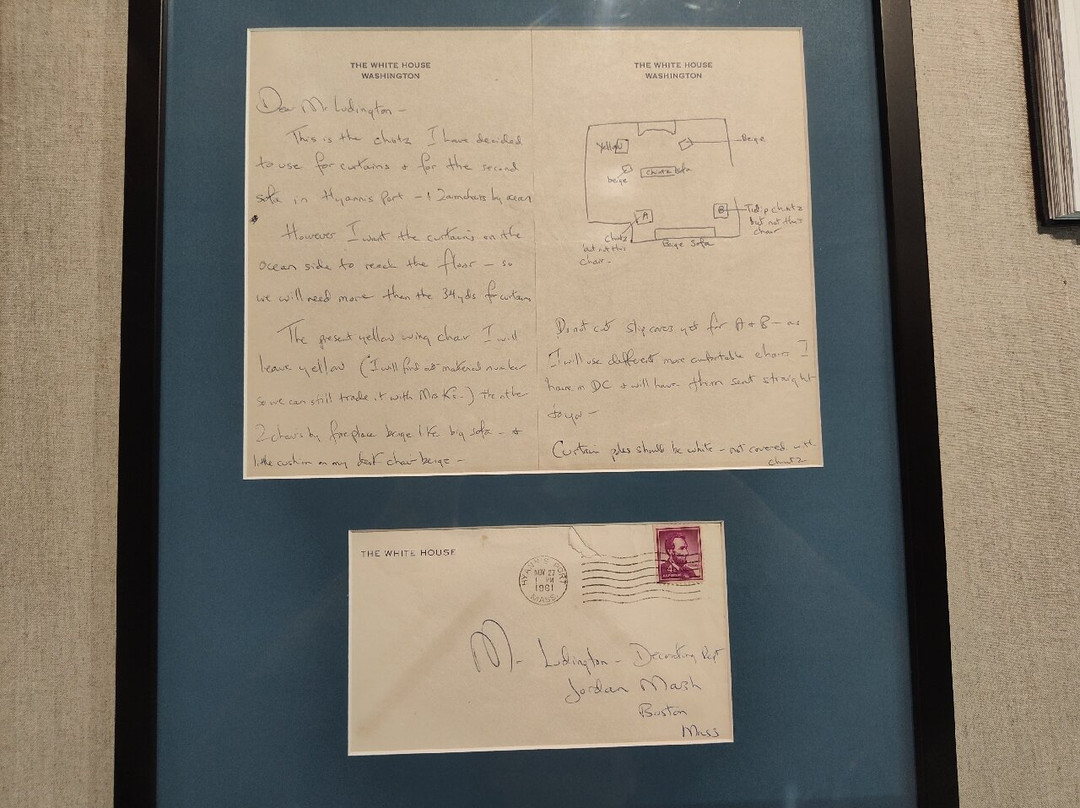 THE WHITE HOUSE
WASHINGTON
Dear Mr Ludington –
This is the chintz I have decided
to use for curtains + for the second
sofa in Hyannis Port – + 2 armchairs by ocean
However I want the curtains on the
ocean side to reach the floor – so
we will need more than the 34 yds for curtains
The present yellow wing chair I will
leave yellow (I will find out material number
so we can still trade it with Mrs K's –) The other
2 chairs by fireplace beige like big sofa – +
little cushion on my desk chair beige –
THE WHITE HOUSE
WASHINGTON
Yellow
Beige
beige
chintz sofa
A
B
chintz
but not this
chair –
Beige Sofa
chintz
but not this
chair
Do not cut slip covers yet for A + B – as
I will use different more comfortable chairs I
have in DC + will have them sent straight
to you –
Curtain poles should be white – not covered with
chintz
THE WHITE HOUSE
HYANNIS PORT
NOV 27
1 PM
1961
MASS
4¢
Mr Ludington – Decorating Dept
Jordan Marsh
Boston
Mass